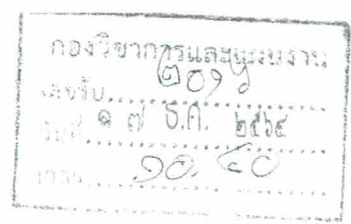 กองวิชาการและแผนงาน
เลขรับ
วันที่ ๑ ๗ ธ.ค. ๒๕๖๔
เวลา ๑๐.๔๐